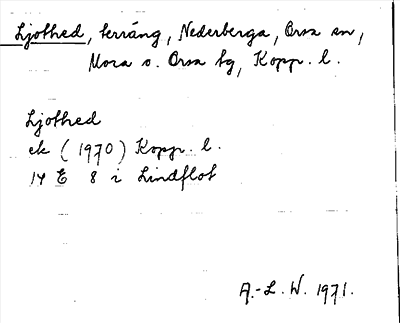 Ljothed, terräng, Nederberga, Orsa sn,
Mora o. Orsa tg, Kopp. l.
Ljothed
ek (1970) Kopp. l.
14 E 8 i Lindflot
A.-L. W. 1971.